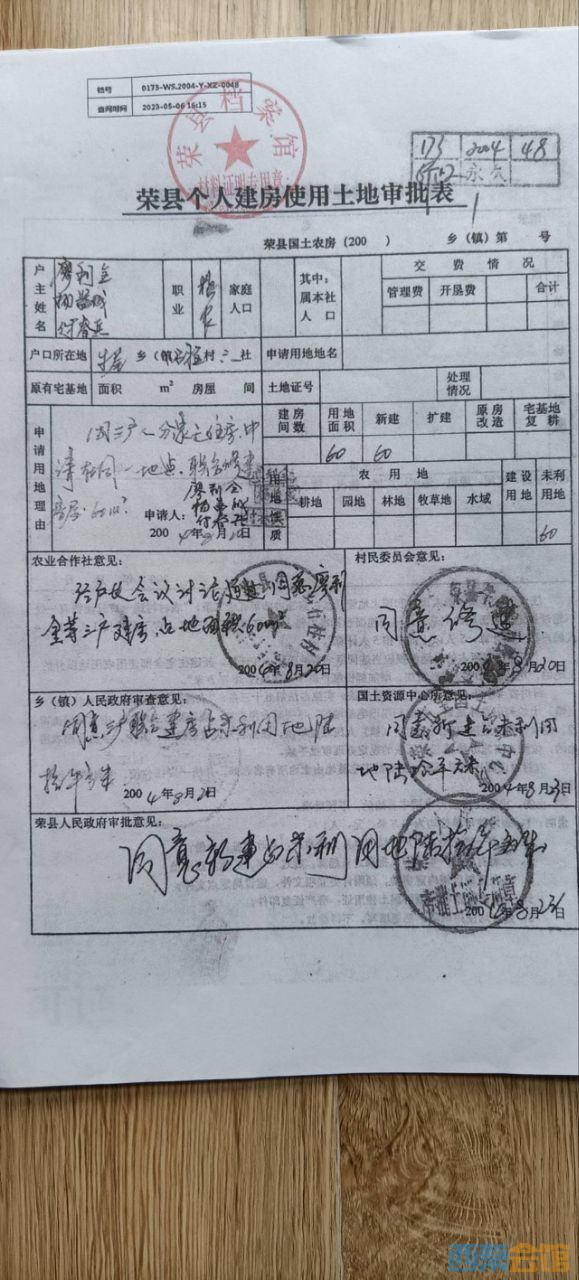 档号 0173-WS.2004-Y-XZ-0048
查阅时间 2023-05-06 16:15
荣县档案馆
材料证明专用章
173 2004 48
永久
荣县个人建房使用土地审批表
荣县国土农房(200 ) 乡(镇)第 号
户主姓名 廖利全 职业 务农 家庭人口 其中:属本社人口 交费情况
管理费 开垦费 合计
户口所在地 乡(镇) 村 三社 申请用地地名
原有宅基地 面积 m² 房屋 间 土地证号 处理情况
申请用地理由
因三户人分家无住房.申
请在同一地点.联合修建
住房.60m²
申请人: 廖利全
2004年8月20日
建房间数 用地面积 新建 扩建 原房改造 宅基地复耕
60 60
用地性质 农用地 建设用地 未利用地
耕地 园地 林地 牧草地 水域
60
农业合作社意见:
经户代会议讨论通过同意廖利
全等三户建房占地面积60m²
2004年8月20日
村民委员会意见:
同意修建.
2004年8月20日
乡(镇)人民政府审查意见:
同意三户联合建房占未利用地陆
拾平方米 2004年8月21日
国土资源中心所意见:
同意新建占未利用
地陆拾平方米
2004年8月23日
荣县人民政府审批意见:
同意新建占未利用地陆拾平方米
2004年8月23日
西祠会馆